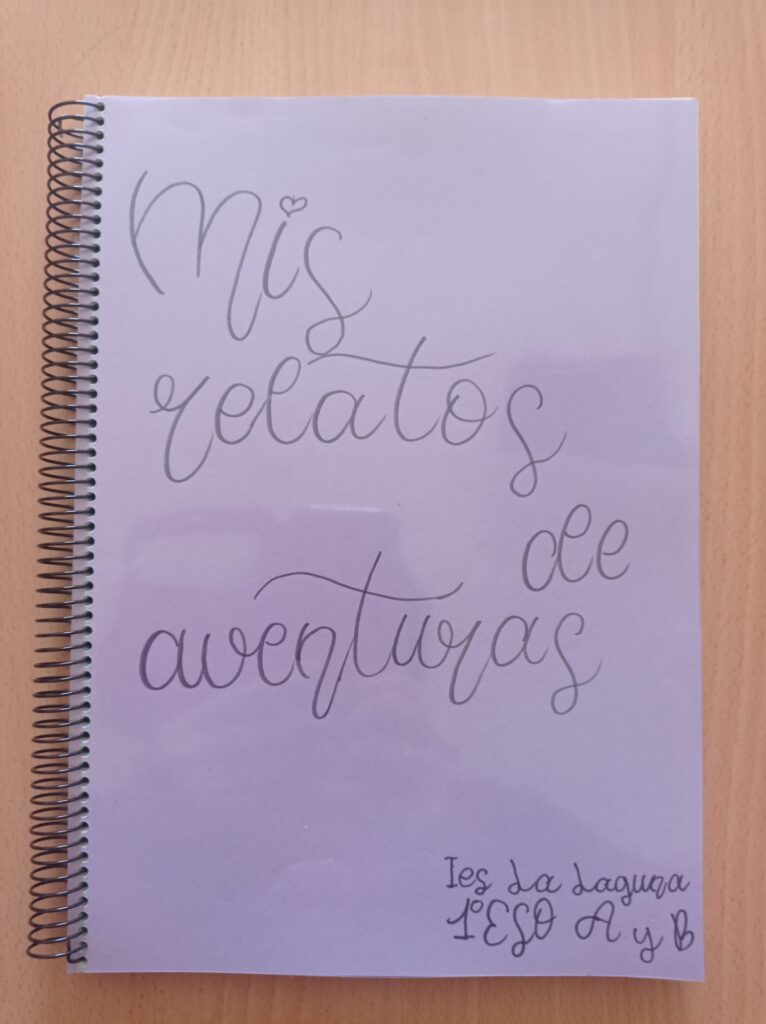 Mis
relatos
de
aventuras
Ies La Laguna
1ºESO A y B